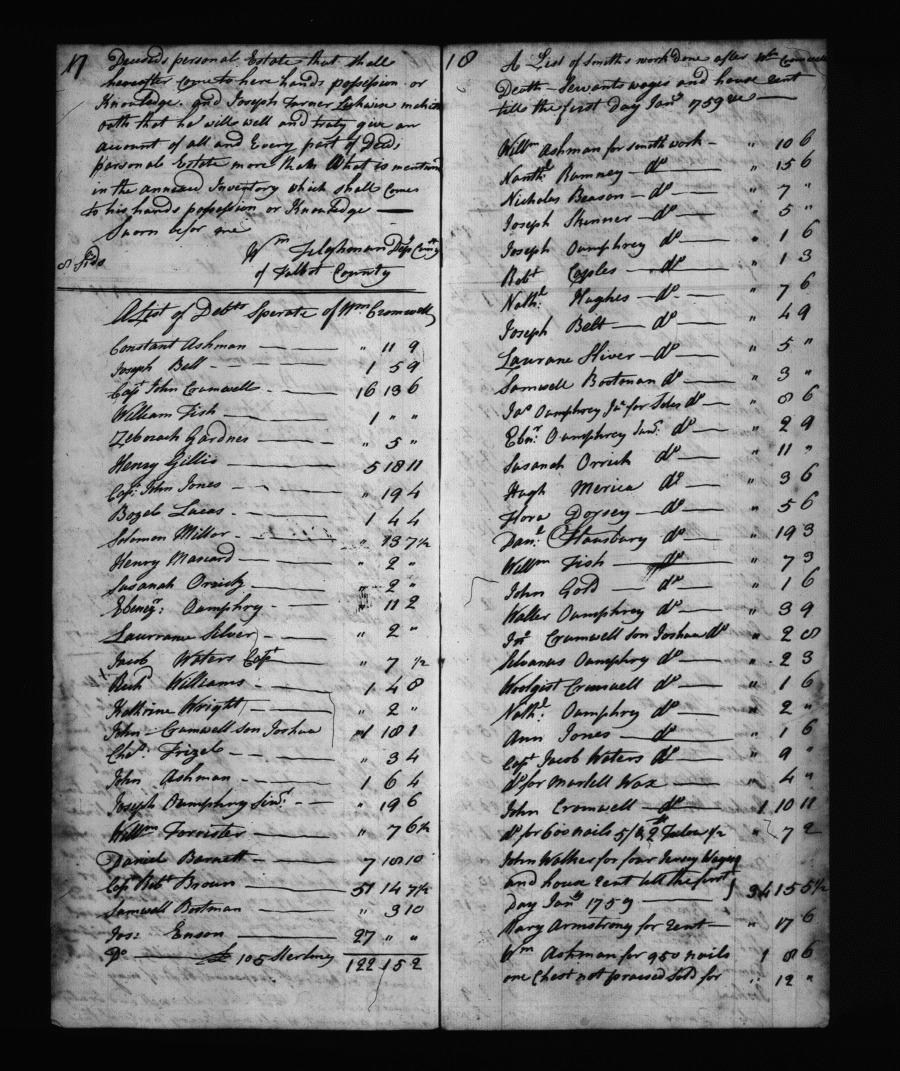 17
Deceseds personal Estate that shall
hereafter come to here hands possession or
Knowledge. and Joseph Farmer Likwise maketh
oath that he will well and truly give an
account of all and Every part of Deceds
parsonal Estate more than What is mention
in the annexed Inventory which shall Come
to his hands possession or Knowledge
Sworn befor me
Wm Tilghman Depy Comry
8 Sids
of Talbot County
A List of Debts Sperate of Wm Cromwell
Constant Ashman " 11 9
Joseph Bell 1 5 9
Capt John Cromwell 16 13 6
William Fish 1 " "
Zeborach Gardner " 5 "
Henry Gillis 5 18 11
Capt John Jones " 19 4
Bozele Lucas 1 4 4
Solomon Millor " 13 7 1/2
Henry Maccard " 2 "
Susanah Orrick " 2 "
Ebenezr: Oumphry " 11 2
Laurrane Silver " 2 "
Jacob Waters Capt " 7 1/2
Richd Williams 1 4 8
Kathrine Wright " 2 "
John Cromwell son Joshua 1 18 1
Chas. Frizele " 3 4
John Ashman 1 6 4
Joseph Oumphry Sinr. " 19 6
Willm Forrister " 7 6 1/2
Daniel Barnett 7 18 10
Capt Robt Brown 51 14 7 1/2
Samwell Bostman " 3 10
Jos: Enson 27 " "
Do £ 105 Sterling 122 15 2
18
A List of Smiths work Done after Wm Cromwell
Death Servants wages and house Rent
tills the first Day Janry 1759
Willm Ashman for smith work " 10 6
Nanthl Rumney do " 15 6
Nicholas Beason do " 7 "
Joseph Skinner do " 5 "
Joseph Oumphrey do " 1 6
Robt Caples do " 1 3
Nathl Hughes do " 7 6
Joseph Belt do " 4 9
Laurane Sliver do " 5 "
Samwell Bostman do " 3 "
Jas Oumphrey Jur for Soles do " 8 6
Ebnr. Oumphrey Junr. do " 2 9
Susanah Orrick do " 11 "
Hugh Merica do " 3 6
Flora Dorsey do " 5 6
Danl. Stansbury do " 19 3
Willm Fish do " 7 3
John Gold do " 1 6
Walter Oumphrey do " 3 9
Jno Cromwell son Joshua do " 2 8
Silvanus Oumphrey do " 2 3
Woolgist Cromwell do " 1 6
Nathl. Oumphrey do " 2 "
Ann Jones do " 1 6
Capt Jacob Waters do " 9 "
do for Martell Wax " 4 "
John Cromwell do 1 10 11
do for 600 nails " 7 2
John Walker for four Wages
and house Rent till the first
Day Janry 1759 34 15 5 1/2
Mary Armstrong for Rent " 17 6
Wm Ashman for 950 nails 1 8 6
one Chest not praised Sold for " 12 "